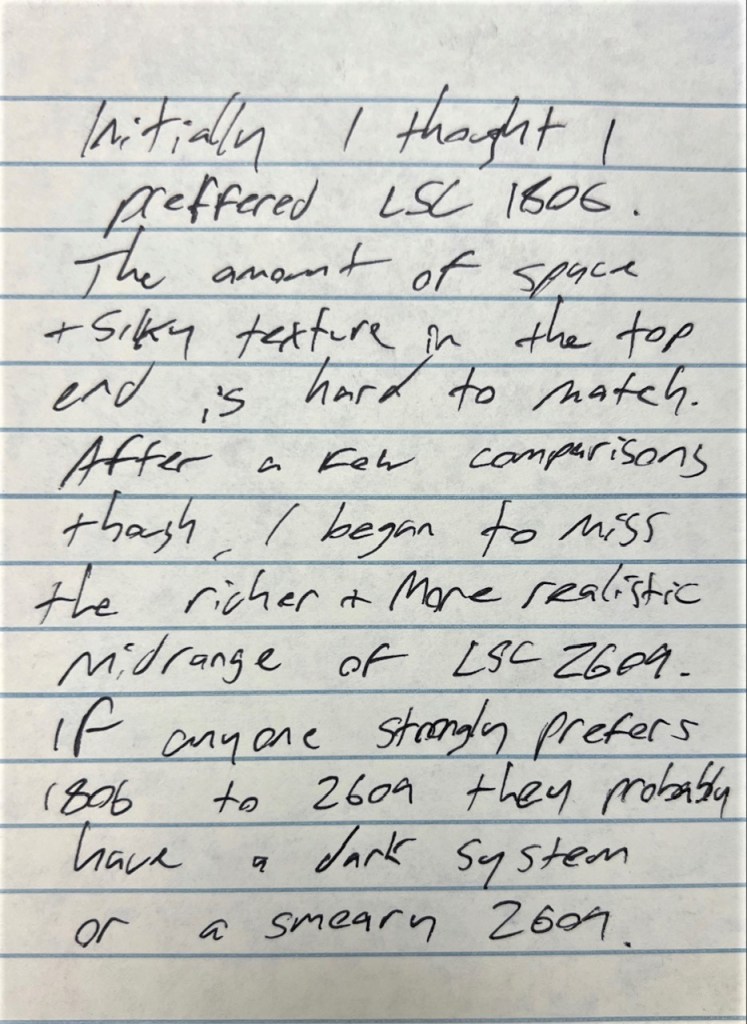 Initially I thought I
preffered LSC 1806.
The amount of space
+ silky texture in the top
end is hard to match.
After a few comparisons
though, I began to miss
the richer + more realistic
midrange of LSC 2609.
If anyone strongly prefers
1806 to 2609 they probably
have a dark system
or a smeary 2609.